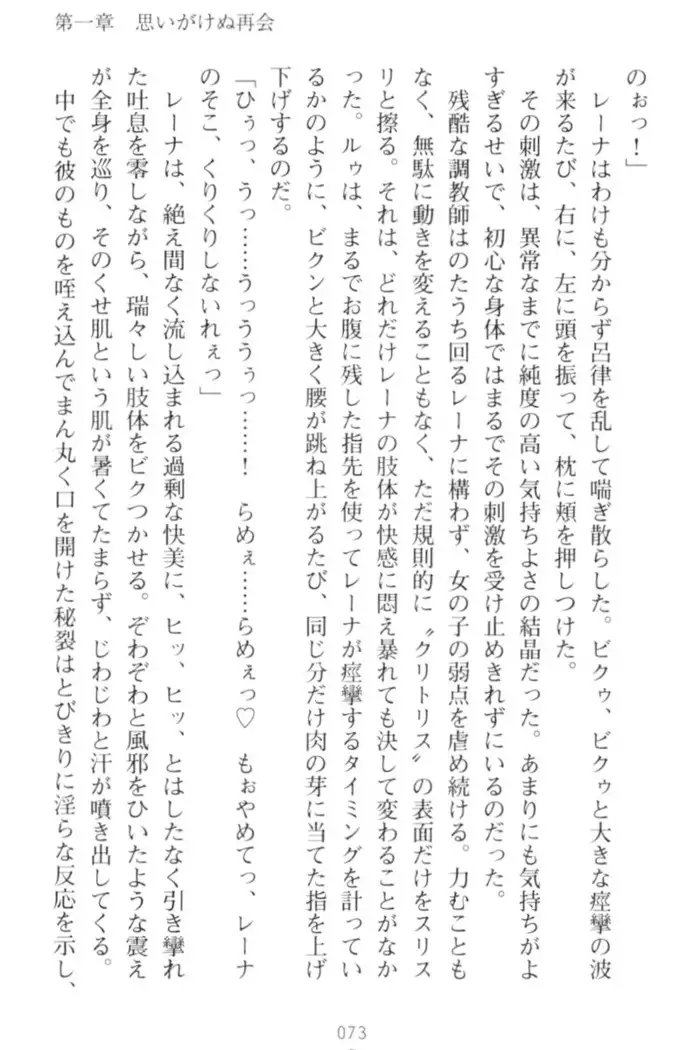 第一章　思いがけぬ再会
のぉっ！」
　レーナはわけも分からず呂律を乱して喘ぎ散らした。ビクゥ、ビクゥと大きな痙攣の波
が来るたび、右に、左に頭を振って、枕に頬を押しつけた。
　その刺激は、異常なまでに純度の高い気持ちよさの結晶だった。あまりにも気持ちがよ
すぎるせいで、初心な身体ではまるでその刺激を受け止めきれずにいるのだった。
　残酷な調教師はのたうち回るレーナに構わず、女の子の弱点を虐め続ける。力むことも
なく、無駄に動きを変えることもなく、ただ規則的に〝クリトリス〟の表面だけをスリス
リと擦る。それは、どれだけレーナの肢体が快感に悶え暴れても決して変わることがなか
った。ルゥは、まるでお腹に残した指先を使ってレーナが痙攣するタイミングを計ってい
るかのように、ビクンと大きく腰が跳ね上がるたび、同じ分だけ肉の芽に当てた指を上げ
下げするのだ。
「ひぅっ、うっ……うっううぅっ……！　らめぇ……らめぇっ♡　もぉやめてっ、レーナ
のそこ、くりくりしないれぇっ」
　レーナは、絶え間なく流し込まれる過剰な快美に、ヒッ、ヒッ、とはしたなく引き攣れ
た吐息を零しながら、瑞々しい肢体をビクつかせる。ぞわぞわと風邪をひいたような震え
が全身を巡り、そのくせ肌という肌が暑くてたまらず、じわじわと汗が噴き出してくる。
　中でも彼のものを咥え込んでまん丸く口を開けた秘裂はとびきりに淫らな反応を示し、
073